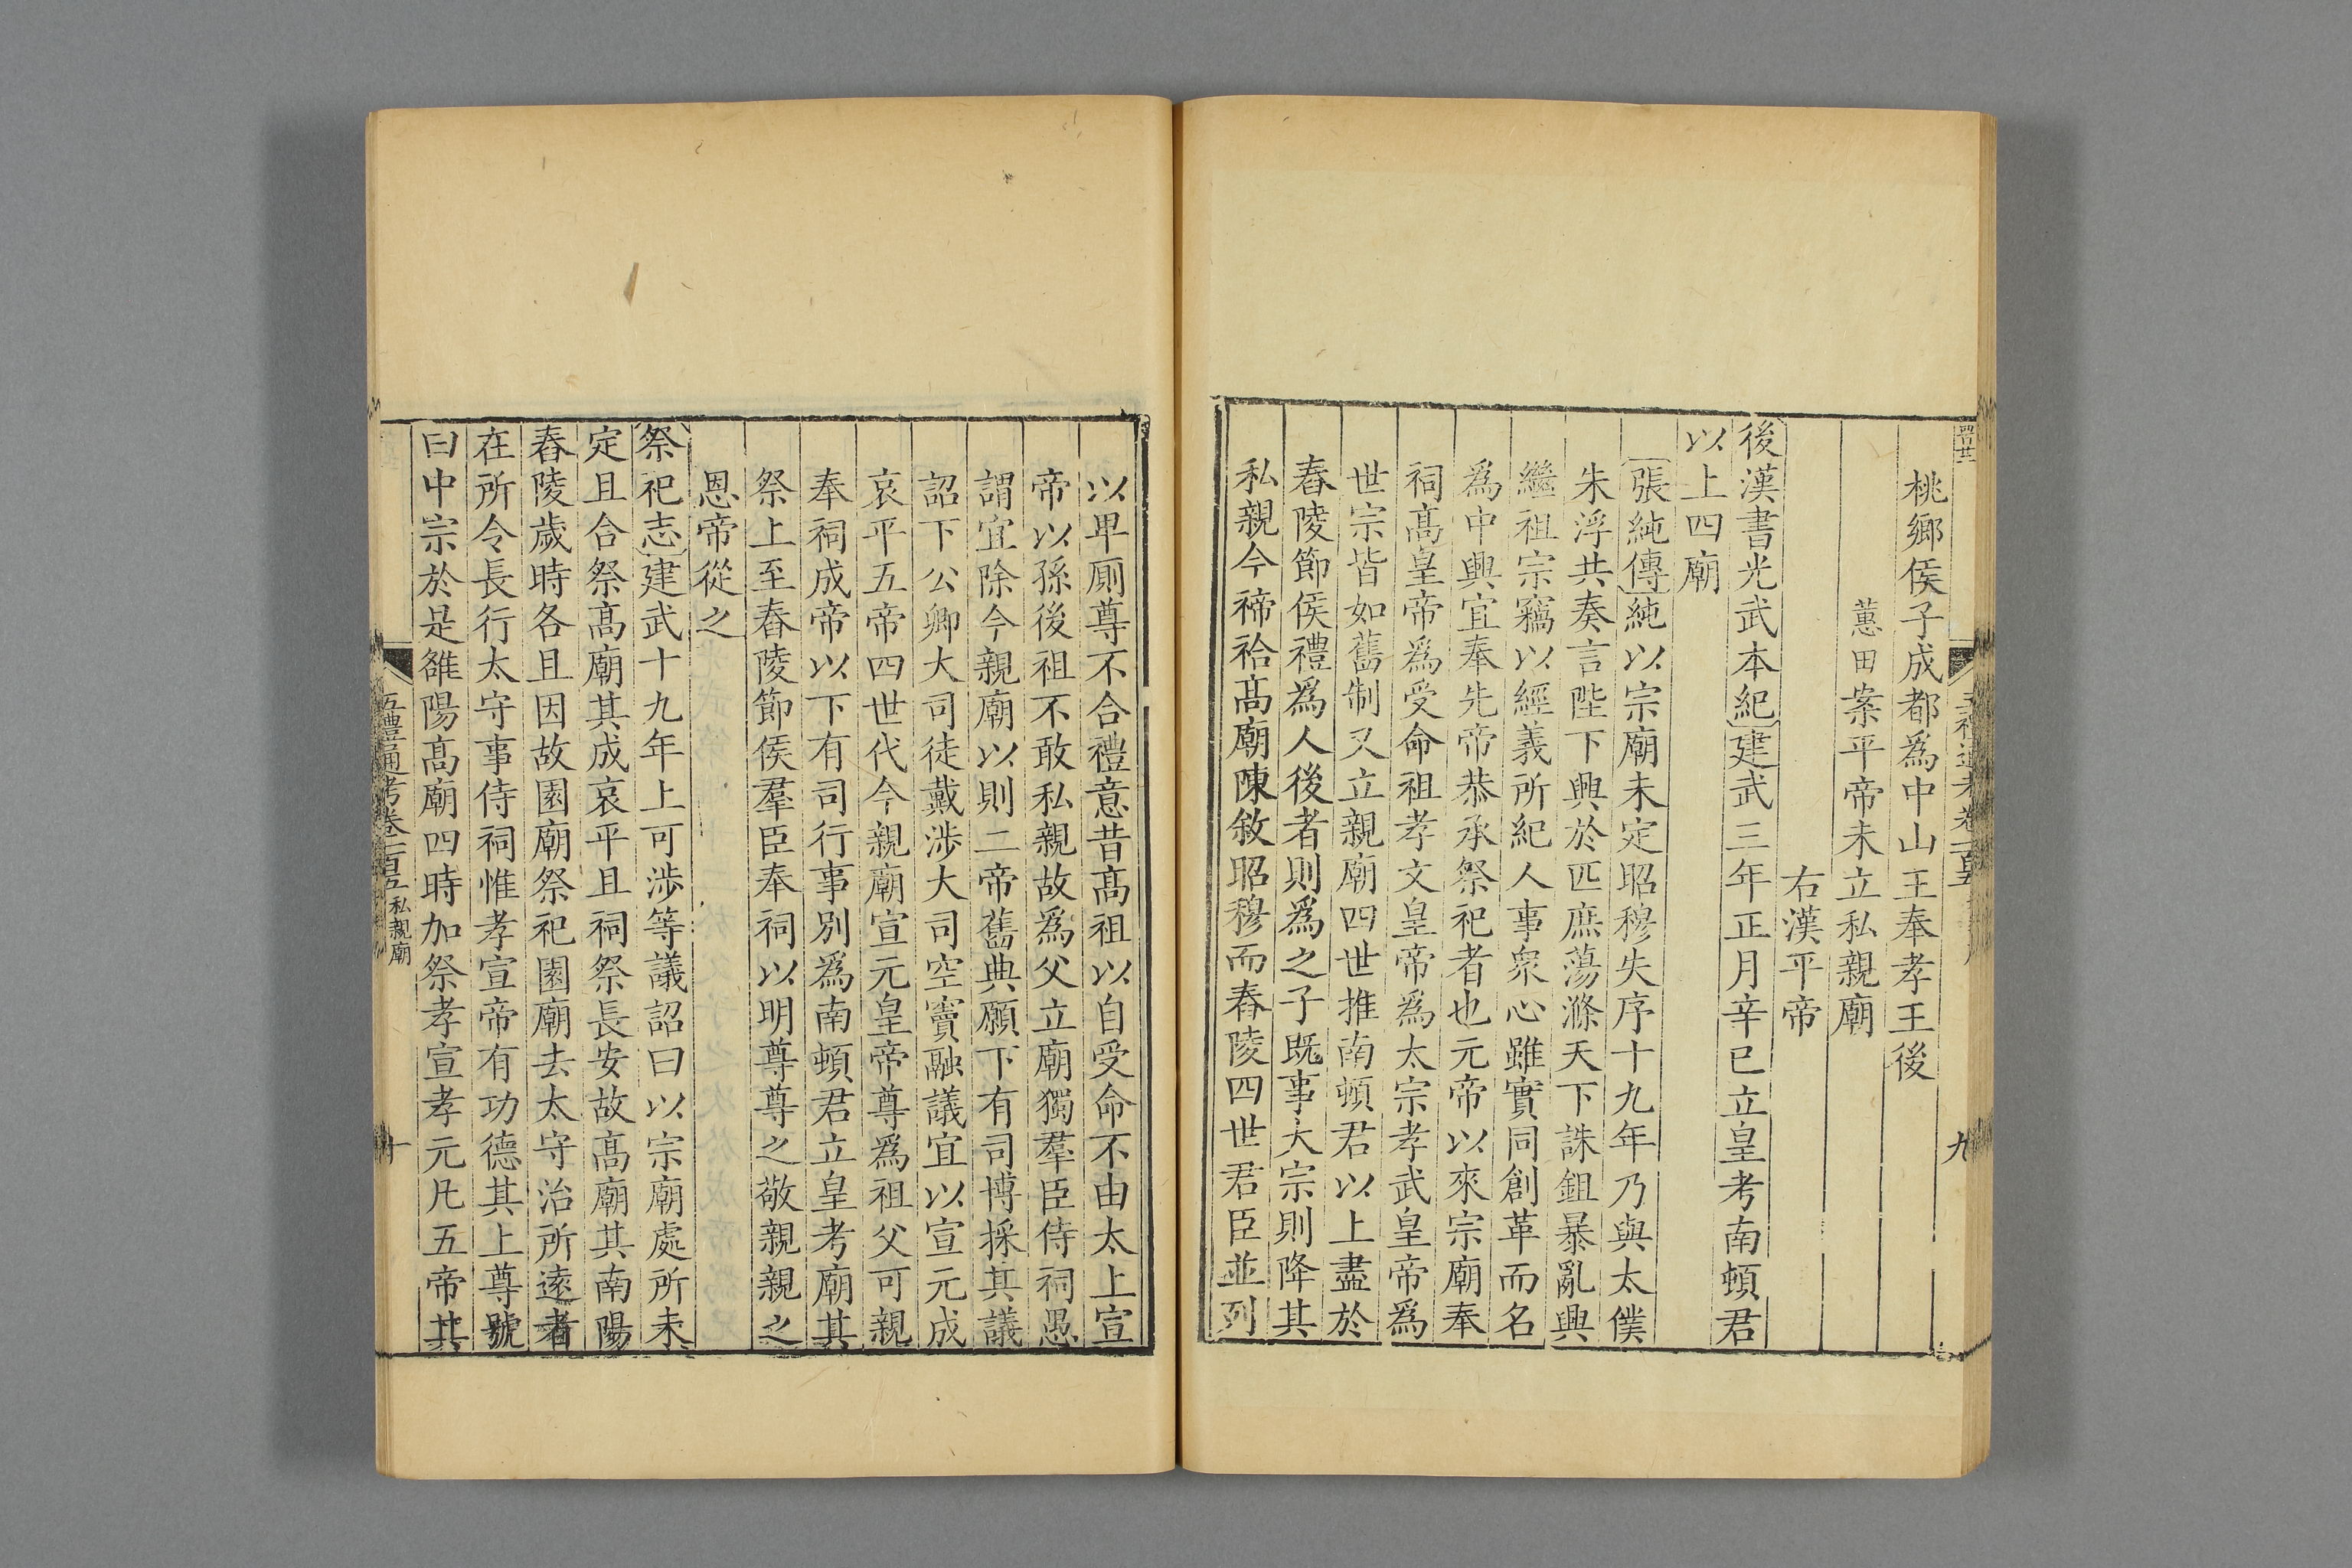 桃鄉侯子成都為中山王奉孝王後
蕙田案平帝未立私親廟
右漢平帝
後漢書光武本紀建武三年正月辛巳立皇考南頓君
以上四廟
張純傳純以宗廟未定昭穆失序十九年乃與太僕
朱浮共奏言陛下興於匹庶蕩滌天下誅鉏暴亂興
繼祖宗竊以經義所紀人事眾心雖實同創革而名
爲中興宜奉先帝恭承祭祀者也元帝以來宗廟奉
祠髙皇帝爲受命祖孝文皇帝爲太宗孝武皇帝爲
世宗皆如舊制又立親廟四世推南頓君以上盡於
舂陵節侯禮爲人後者則爲之子既事大宗則降其
私親今禘祫髙廟陳敘昭穆而舂陵四世君臣並列
以卑厠尊不合禮意昔髙祖以自受命不由太上宣
帝以孫後祖不敢私親故爲父立廟獨羣臣侍祠愚
謂宜除今親廟以則二帝舊典願下有司博採其議
詔下公卿大司徒戴涉大司空竇融議宜以宣元成
哀平五帝四世代今親廟宣元皇帝尊爲祖父可親
奉祠成帝以下有司行事別爲南頓君立皇考廟其
祭上至舂陵節侯羣臣奉祠以明尊尊之敬親親之
恩帝從之
祭祀志建武十九年上可涉等議詔曰以宗廟處所未
定且合祭髙廟其成哀平且祠祭長安故髙廟其南陽
舂陵歲時各且因故園廟祭祀園廟去太守治所遠者
在所令長行太守事侍祠惟孝宣帝有功德其上尊號
曰中宗於是雒陽髙廟四時加祭孝宣孝元凡五帝其
五禮通考卷一百五 私親廟
十
九